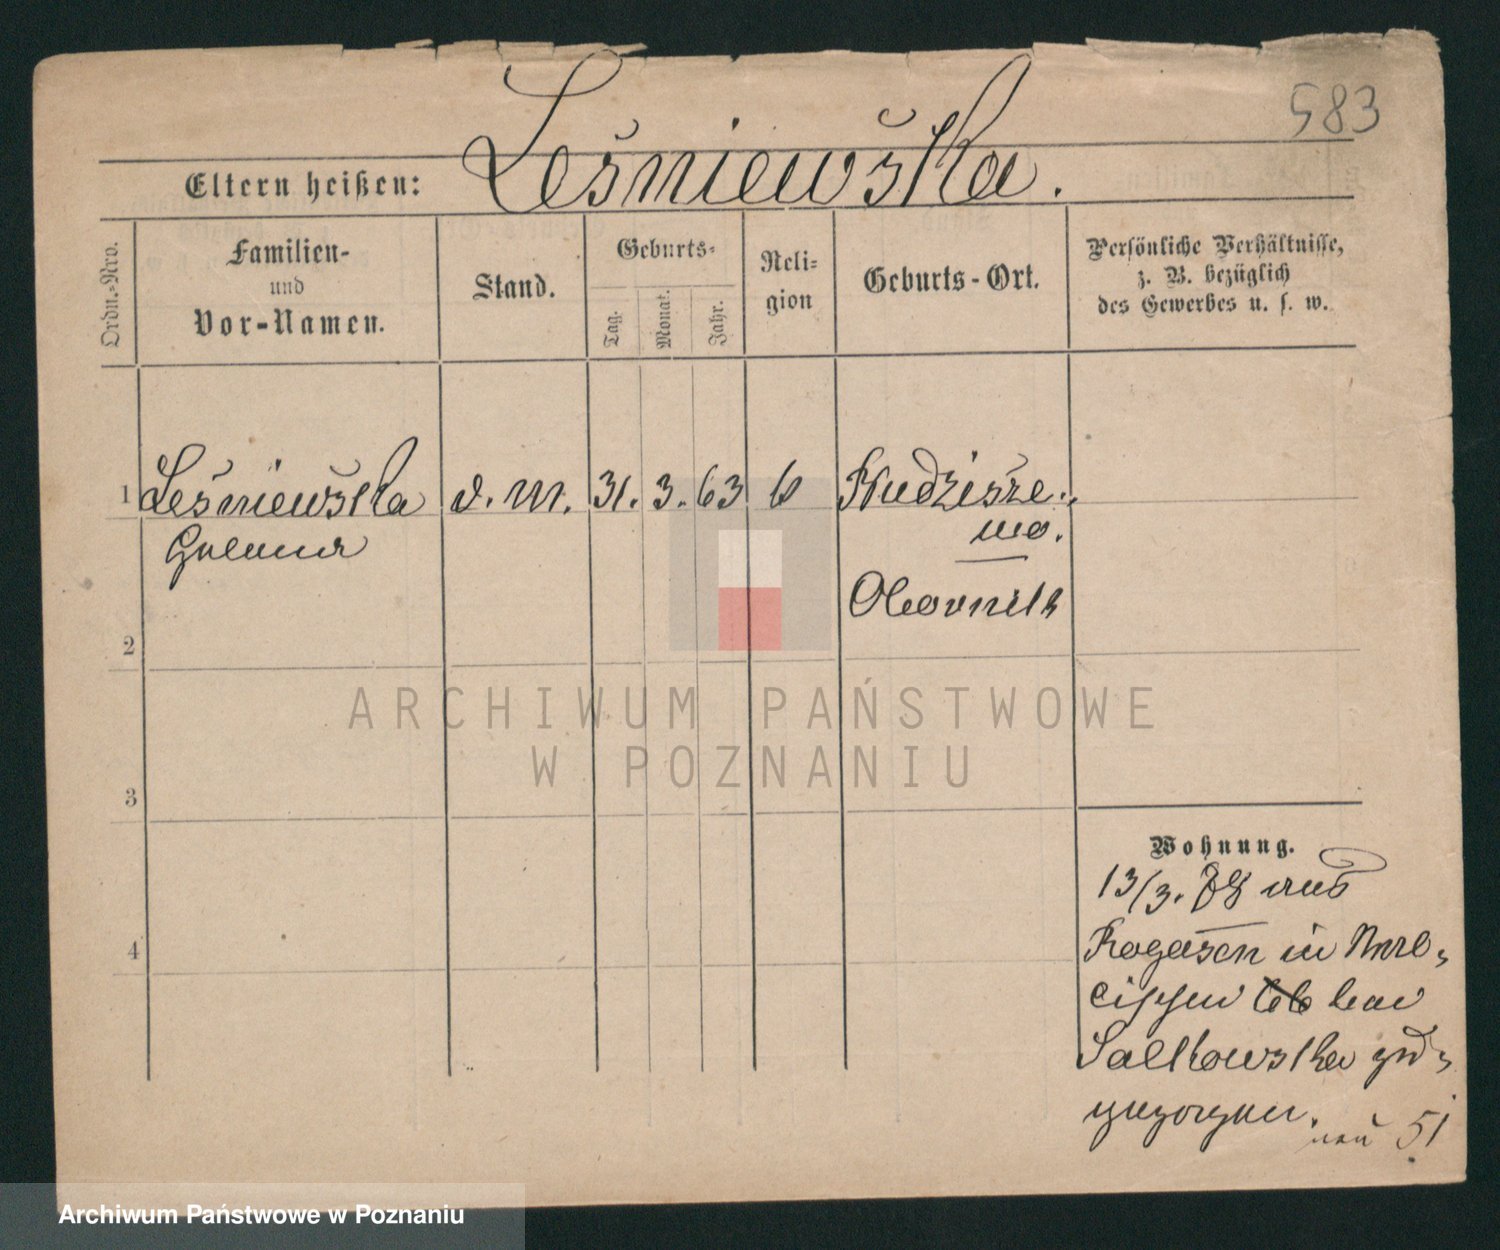 583
Leśniewska.
Eltern heißen:
Ordn.-Nro.
Familien-
und
Vor-Namen.
Stand.
Geburts-
Tag.
Monat.
Jahr.
Reli-
gion
Geburts-Ort.
Persönliche Verhältnisse,
z. B. bezüglich
des Gewerbes u. s. w.
1 Leśniewska d. M. 31. 3. 63
mo.
Obornik
2
3
4
Wohnung.
13/3. aus
Rogasen in
bei
zu-
gezogen.
neu 51
ARCHIWUM PAŃSTWOWE
W POZNANIU
Archiwum Państwowe w Poznaniu